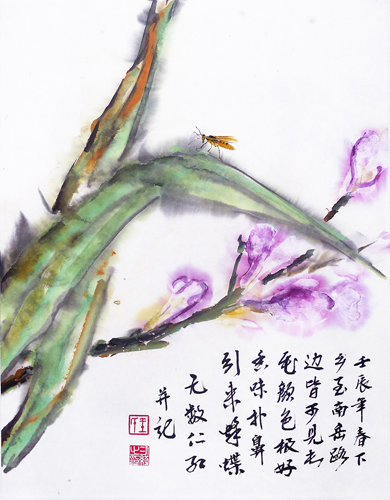 壬辰年春下
乡至南岳路
边皆可见此
花颜色极好
香味扑鼻
引来蜂蝶
无数仁
并记